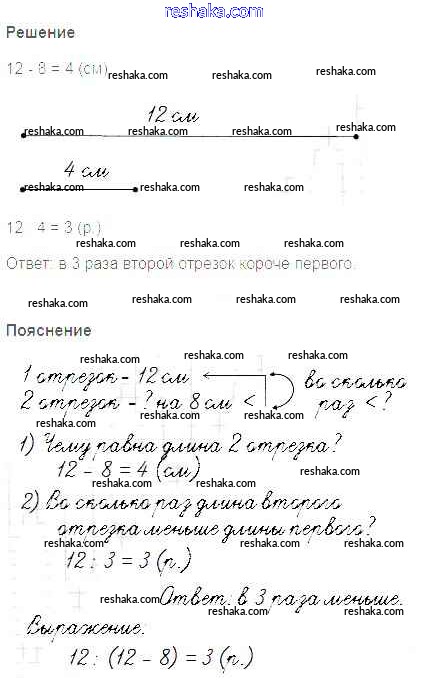 reshaka.com
Решение
12 - 8 = 4 (см)
reshaka.com reshaka.com reshaka.com
12 см
reshaka.com reshaka.com reshaka.com reshaka.com
4 см
reshaka.com reshaka.com reshaka.com
12 4 = 3 (р.)
reshaka.com reshaka.com reshaka.com
Ответ: в 3 раза второй отрезок короче первого.
reshaka.com reshaka.com reshaka.com reshaka.com
Пояснение
reshaka.com reshaka.com reshaka.com
1 отрезок - 12 см во сколько
2 отрезок - ? на 8 см < раз < ?
reshaka.com reshaka.com reshaka.com
1) Чему равна длина 2 отрезка?
reshaka.com reshaka.com
12 - 8 = 4 (см)
reshaka.com reshaka.com reshaka.com
2) Во сколько раз длина второго
reshaka.com reshaka.com reshaka.com
отрезка меньше длины первого?
reshaka.com reshaka.com reshaka.com reshaka.com
12 : 3 = 3 (р.)
reshaka.com reshaka.com
Ответ: в 3 раза меньше.
reshaka.com reshaka.com reshaka.com
Выражение:
reshaka.com reshaka.com reshaka.com
12 : (12 - 8) = 3 (р.)
reshaka.com reshaka.com